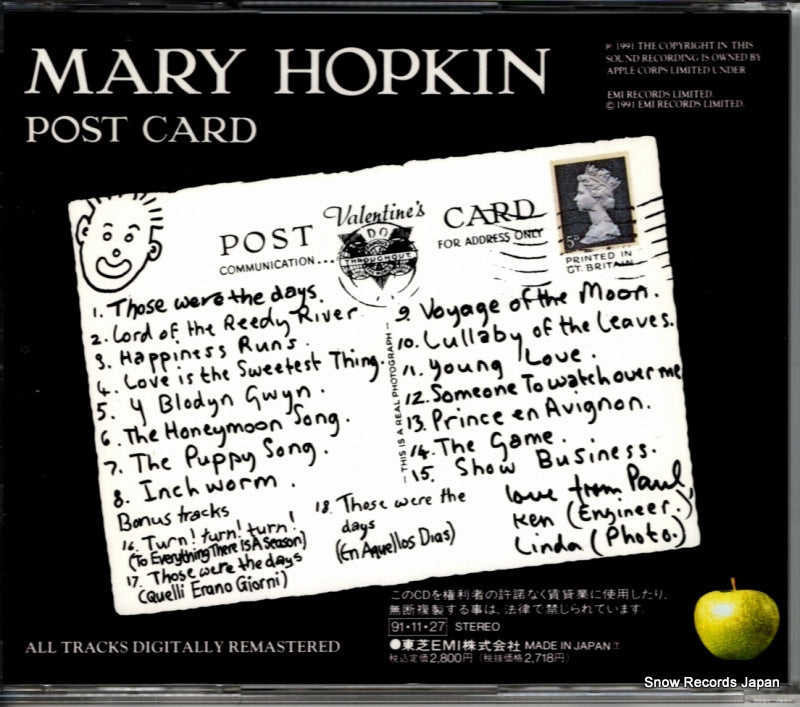 MARY HOPKIN
POST CARD
℗ 1991 THE COPYRIGHT IN THIS
SOUND RECORDING IS OWNED BY
APPLE CORPS LIMITED UNDER
EMI RECORDS LIMITED.
© 1991 EMI RECORDS LIMITED.
POST Valentine's CARD
COMMUNICATION...
DO
THROUGHOUT
FOR ADDRESS ONLY
5D
PRINTED IN
GT. BRITAIN
1. Those were the days.
2. Lord of the Reedy River.
3. Happiness Runs.
4. Love is the Sweetest Thing.
5. Y Blodyn Gwyn.
6. The Honeymoon Song.
7. The Puppy Song.
8. Inch worm.
Bonus tracks
16. Turn! turn! turn!
(To Everything There Is A Season)
17. Those were the days
(Quelli Erano Giorni)
18. Those were the
days
(En Aquellos Dias)
— THIS IS A REAL PHOTOGRAPH —
9. Voyage of the Moon.
10. Lullaby of the Leaves.
11. Young Love.
12. Someone To watch over me
13. Prince en Avignon.
14. The Game.
15. Show Business.
love from Paul,
Ken (Engineer.)
Linda (Photo.)
ALL TRACKS DIGITALLY REMASTERED
このCDを権利者の許諾なく賃貸業に使用したり、
無断複製する事は、法律で禁じられています。
91・11・27 STEREO
●東芝EMI株式会社 MADE IN JAPAN
税込定価2,800円 (税抜価格2,718円)
Snow Records Japan